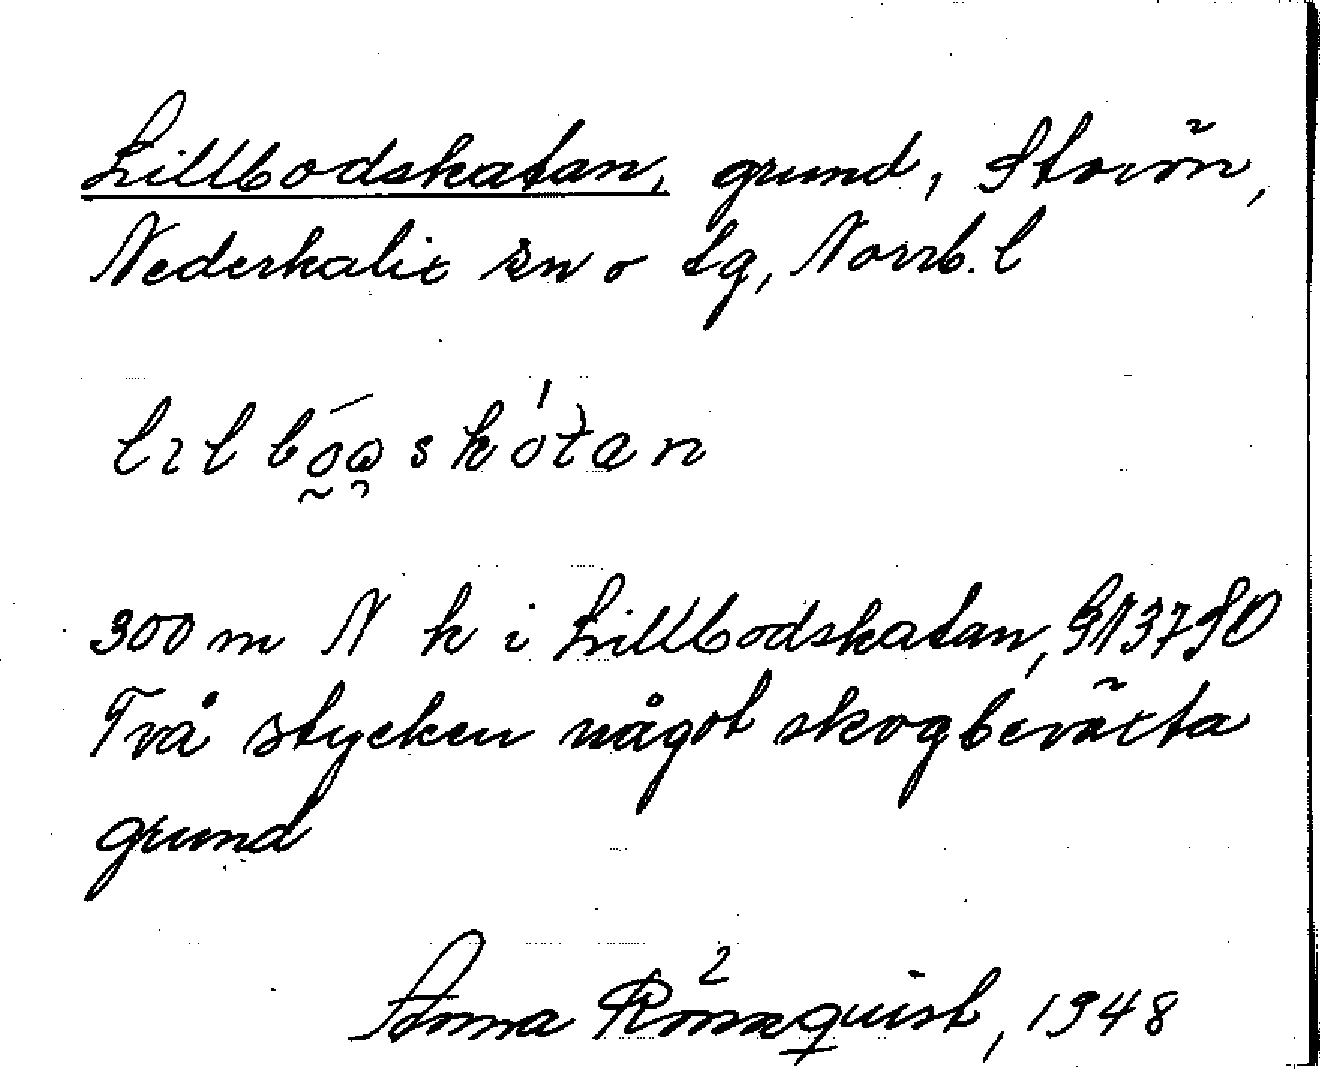 Lillbodskatan, grund, Storön,
Nederkalix sn o tg, Norrb. l
300 m N k i Lillbodskatan,
Två stycken något skogbevätta
grund
Anna Rönnquist, 1948